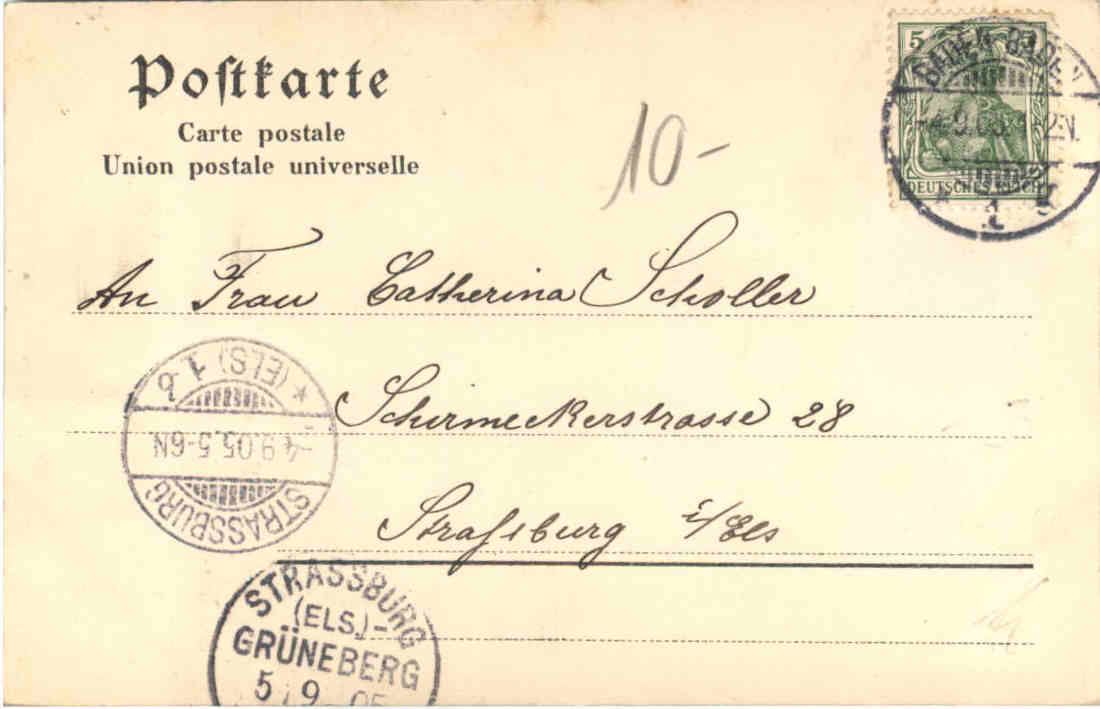 Postkarte
Carte postale
Union postale universelle
10-
5 5
DEUTSCHES REICH
BADEN-BADEN
-4.9.05. 1-2N.
* 1
An Frau Catherina Scholler
Schirmeckerstrasse 28
Straßburg i/Els
STRASSBURG
-4.9.05.5-6N
* (ELS.) 1 b
STRASSBURG
(ELS.)-
GRÜNEBERG
5 9 05